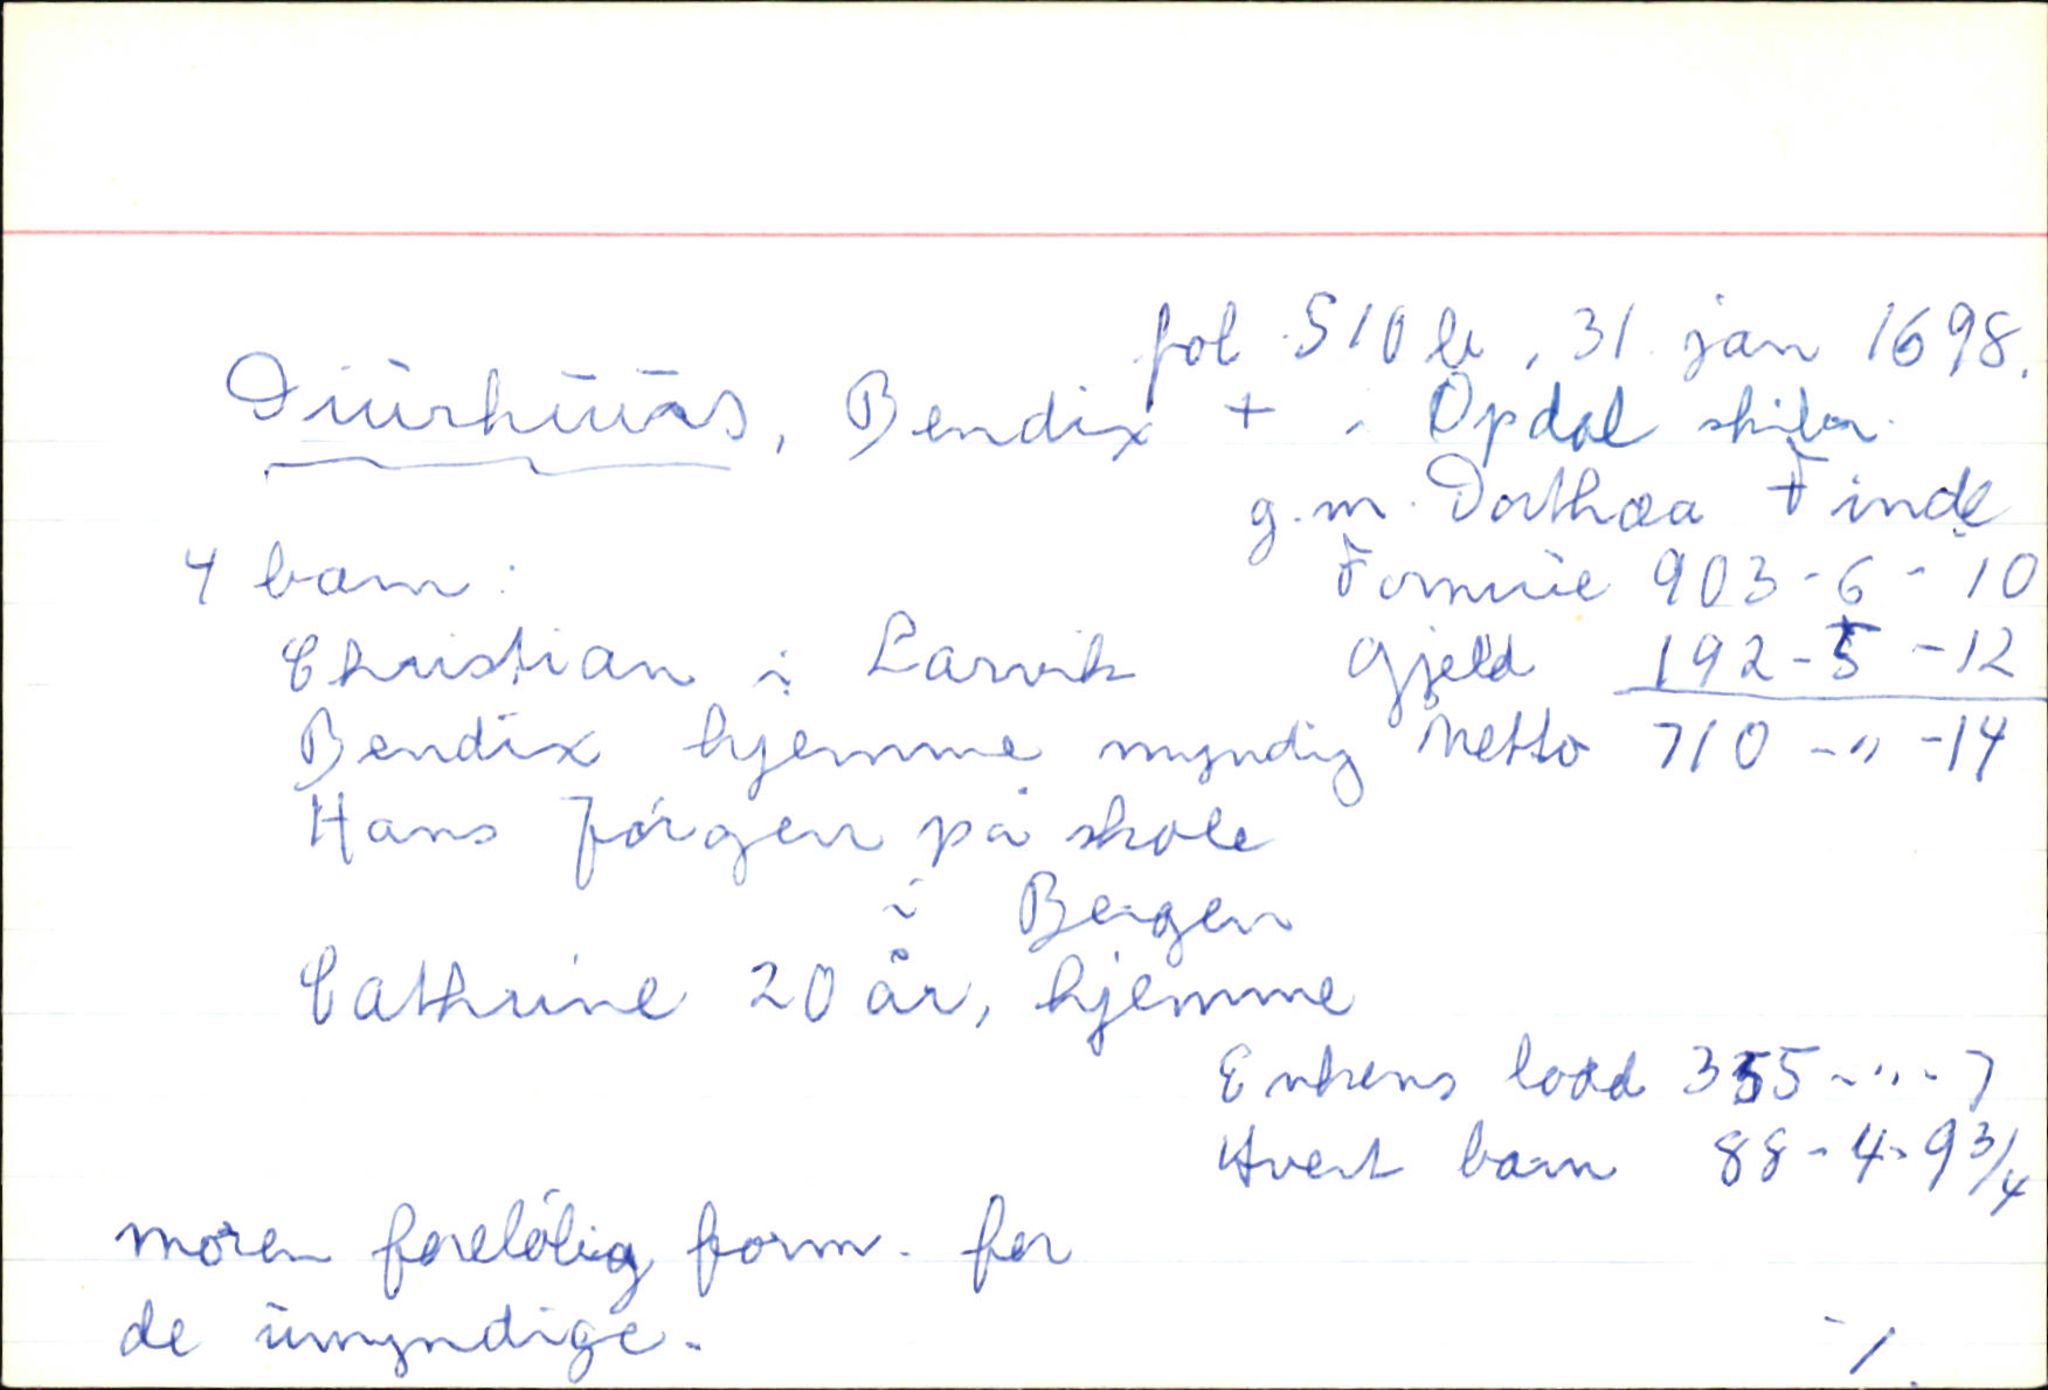 fol 510 b, 31 jan 1698.
Diurhuus, Bendix + i Opdal skibr.
g.m. Dorthæa Finde
4 barn: Formue 903-6-10
Christian i Larvik Gjeld 192-5-12
Bendix hjemme myndig Netto 710-"-14
Hans Jörgen på skole
i Bergen
Cathrine 20 år, hjemme
Enkens lodd 355-"-7
Hvert barn 88-4-9 3/4
moren forelöbig form. for
de umyndige.